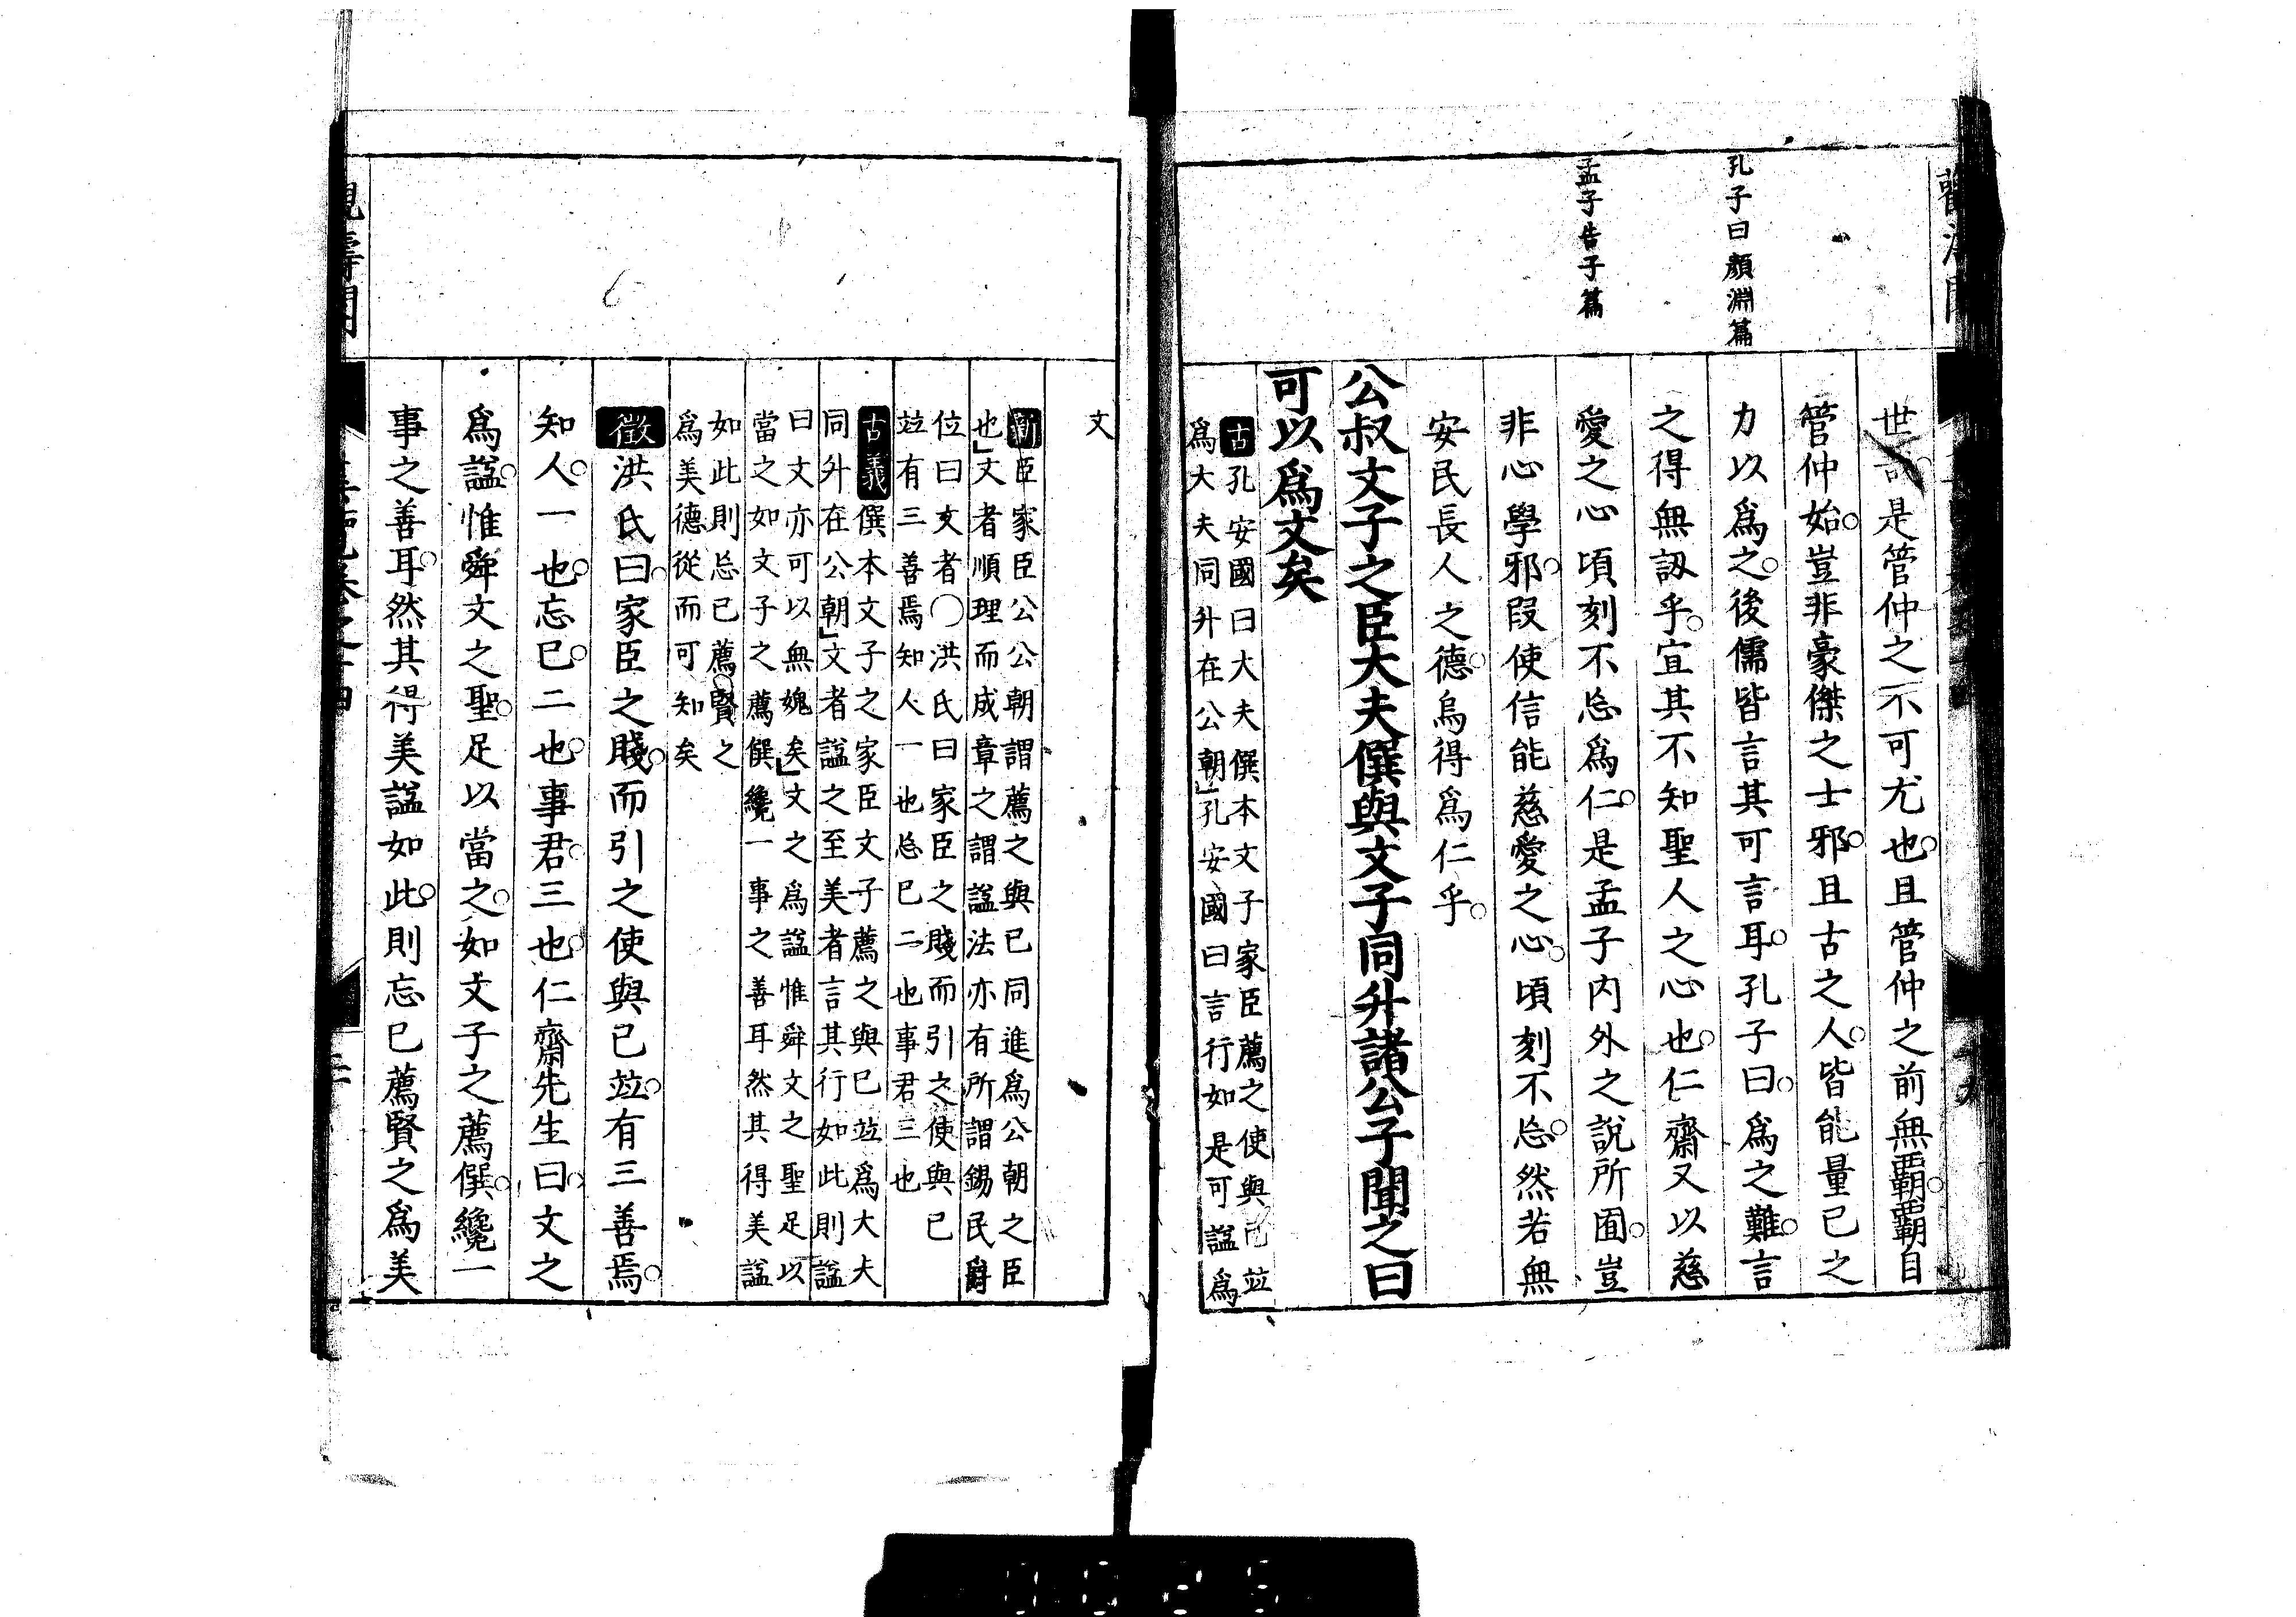 孔子曰顏淵篇
孟子告子篇
世言是管仲之不可尤也且管仲之前無覇覇自
管仲始豈非豪傑之士邪且古之人皆能量已之
力以爲之後儒皆言其可言耳孔子曰爲之難言
之得無訒乎宜其不知聖人之心也仁齋又以慈
愛之心頃刻不忘爲仁是孟子内外之說所囿豈
非心學邪叚使信能慈愛之心頃刻不忘然若無
安民長人之德烏得爲仁乎
公叔文子之臣大夫僎與文子同升諸公子聞之曰
可以爲文矣
古孔安國曰大夫僎本文子家臣薦之使與已竝
爲大夫同升在公朝」孔安國曰言行如是可謚爲
文
新臣家臣公公朝謂薦之與已同進爲公朝之臣
也」文者順理而成章之謂謚法亦有所謂錫民爵
位曰文者○洪氏曰家臣之賤而引之使與已
竝有三善焉知人一也忘已二也事君三也
古義僎本文子之家臣文子薦之與已竝爲大夫
同升在公朝」文者謚之至美者言其行如此則謚
曰文亦可以無媿矣」文之爲謚惟舜文之聖足以
當之如文子之薦僎纔一事之善耳然其得美謚
如此則忘已薦賢之
爲美德從而可知矣
徵洪氏曰家臣之賤而引之使與已竝有三善焉
知人一也忘已二也事君三也仁齋先生曰文之
爲謚惟舜文之聖足以當之如文子之薦僎纔一
事之善耳然其得美謚如此則忘已薦賢之爲美